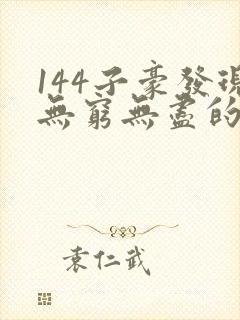 144子豪發現
無窮無盡的
袁仁武